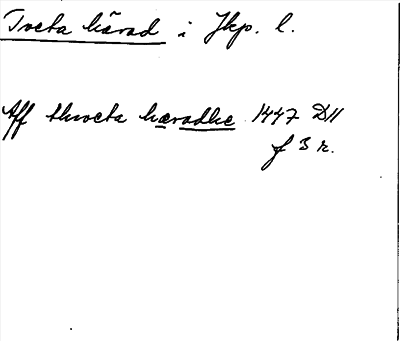 Tveta härad i Jkp. l.
Aff thveta hæradhe 1447 D11
f 3 r.